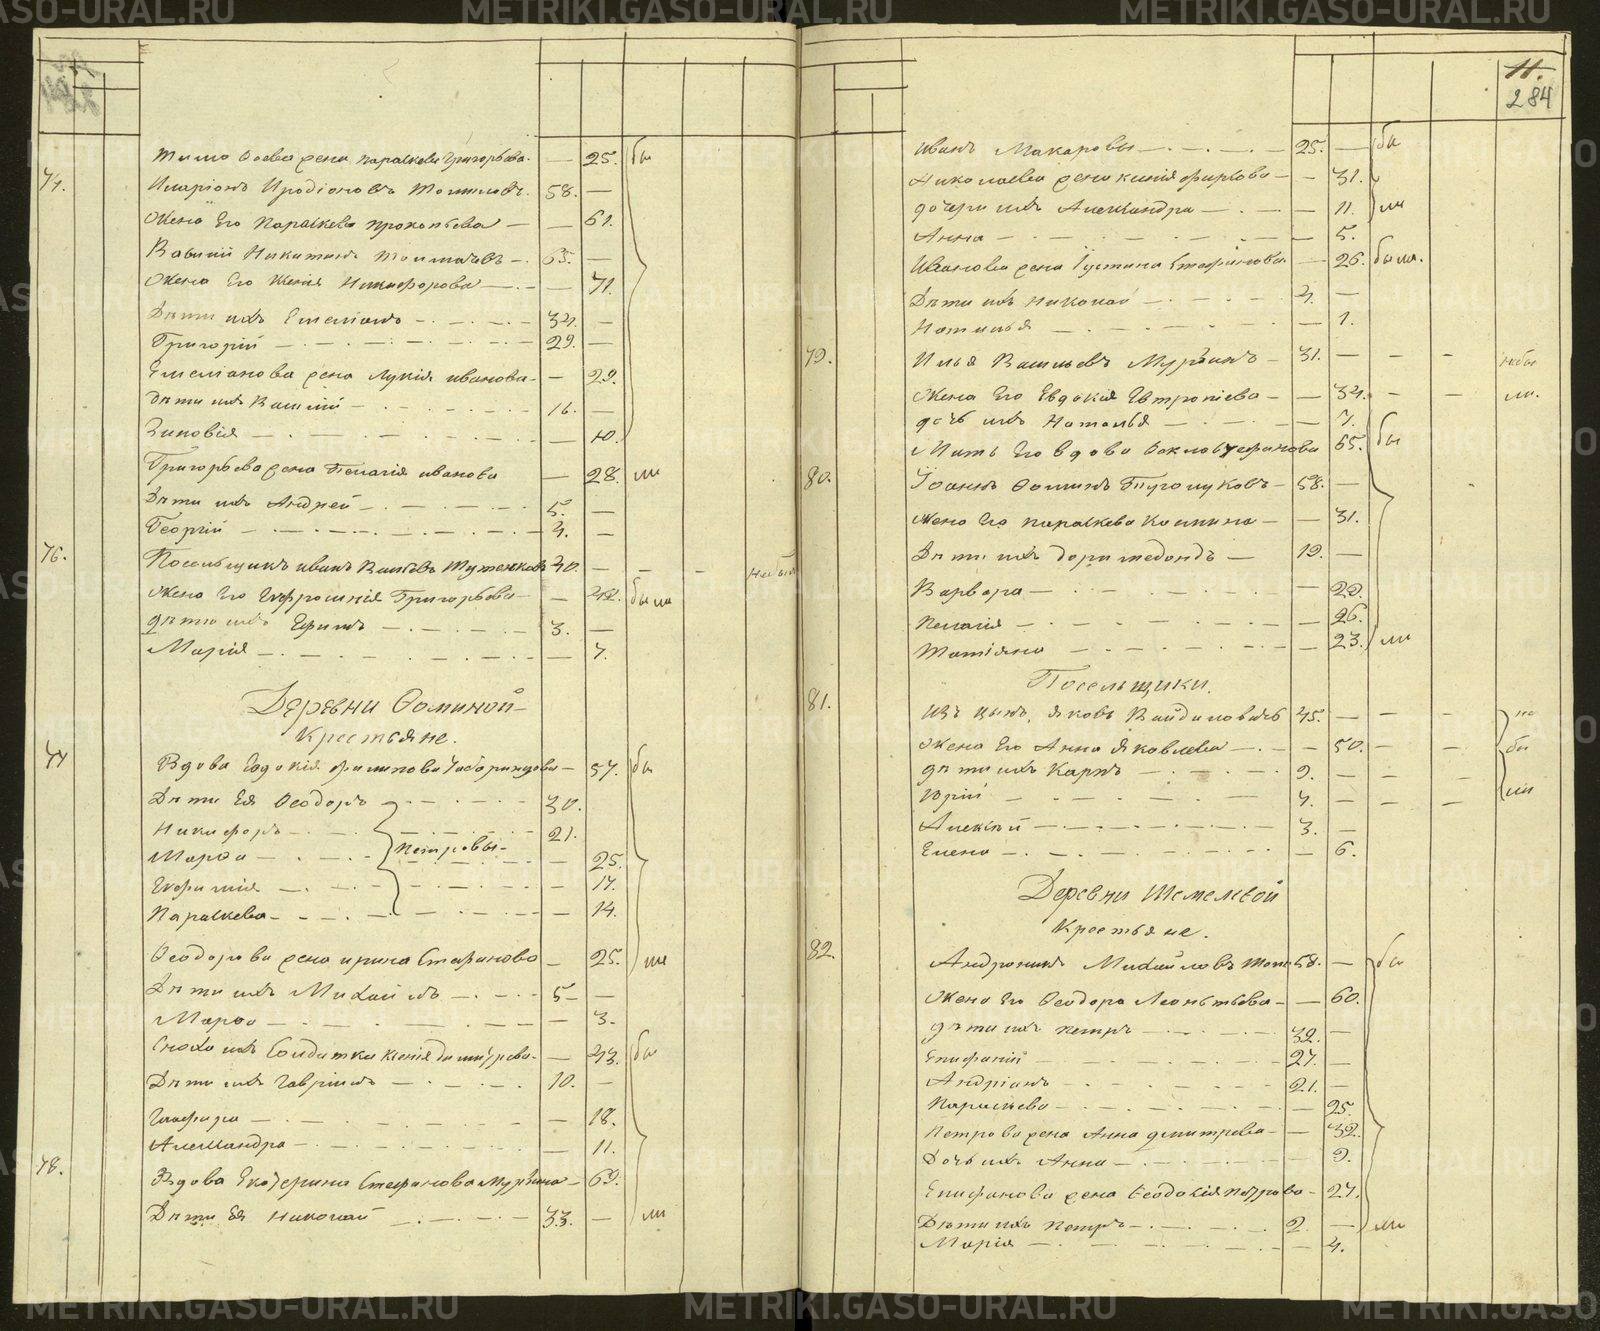 METRIKI.GASO-URAL.RU
11.
284
жена Параскева Григорьева 25. бы
Иларіонъ Иродіоновъ 58.
Жена Его Параскева Прокопьева 61.
Василий Никитинъ 65.
Жена Его Ксенія Никифорова 71.
Дѣти ихъ Емеліанъ 34.
Григорій 29.
Емелианова жена Лукія Иванова 29.
Дѣти ихъ Василий 16.
Зиновія 10.
Григорьева жена Пелагія Иванова 28. ли
Дѣти ихъ Андрей 5.
Георгій
76.
Посельщикъ Иванъ
Жена Его Евфросинія Григорьева 42. были
Дѣти ихъ Ефимъ 3.
Марія 7.
Деревни Ѳоминой
Крестьяне.
77
Вдова Евдокія Филипова 57. бы
Дѣти Ея Ѳеодоръ 30.
Никифоръ 21.
Петровы
Марѳа 25.
Евфимія 17.
Параскева 14.
Ѳеодорова жена Ирина Стефанова 25. ли
Дѣти ихъ Михаилъ 5
Марѳа 3.
Сноха ихъ Солдатка Ксенія Димитрева 43. бы
Дѣти ихъ Гавріилъ 10.
Глафира 18.
Александра 11.
78.
Вдова Екатерина Стефанова Мурзина 69.
Дѣти Ея Николай 33. ли
Иванъ Макаровы 25. бы
Николаева жена Ксенія Фирсова 31.
дочери ихъ Александра 11. ли
Анна 5.
Иванова жена Іустина Стефанова 26. были.
Дѣти ихъ Николай
Наталья 1.
79.
Илья Васильевъ Мурзинъ 31. небы
Жена Его Евдокія Евтропіева 34. ли.
дочь ихъ Наталья 7.
Мать Его вдова Ѳекла Стефанова 65. бы
80.
Іоаннъ Ѳоминъ Пуголуковъ 58.
Жена Его Параскева 31.
Дѣти ихъ Доримедонтъ 19.
Варвара 22.
Пелагія 26.
Татіана 23. ли
Посельщики.
81.
Яковъ 45. не
Жена Его Анна Яковлева 50. бы
Дѣти ихъ Карпъ 9.
Юрій ли
Алексѣй 3.
Елена 6.
Деревни Шемелевой
Крестьяне.
82.
Андроникъ Михайловъ 58. бы
Жена Его Ѳеодора Леонтьева 60.
Дѣти ихъ Петръ 32.
Епифаній 27.
Андріанъ 21.
Параскева 25.
Петрова жена Анна Дмитрева 32.
Дочь ихъ Анна 9.
Епифанова жена Ѳеодосія Петрова 27.
Дѣти ихъ Петръ 2. ли
Марія 4.